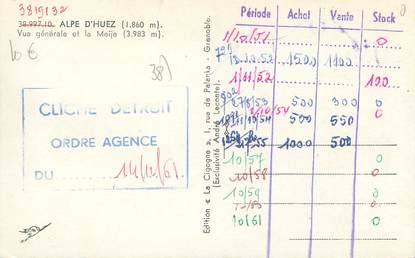 3819132
38.997.10. ALPE D'HUEZ (1.860 m).
Vue générale et la Meije (3.983 m).
10 €
38)
CLICHÉ DETROIT
ORDRE AGENCE
DU
Edition « La Cigogne », 1, rue de Palerle - Grenoble.
(Exclusivité André Leconte)
Période Achat Vente Stock
1/10/51 0
1500 1100
1/11/52 100
27/8/53 500 300 0
500 550 0
55 1000 500
10/57 0
10/58 0
10/59 0
0
10/61 0